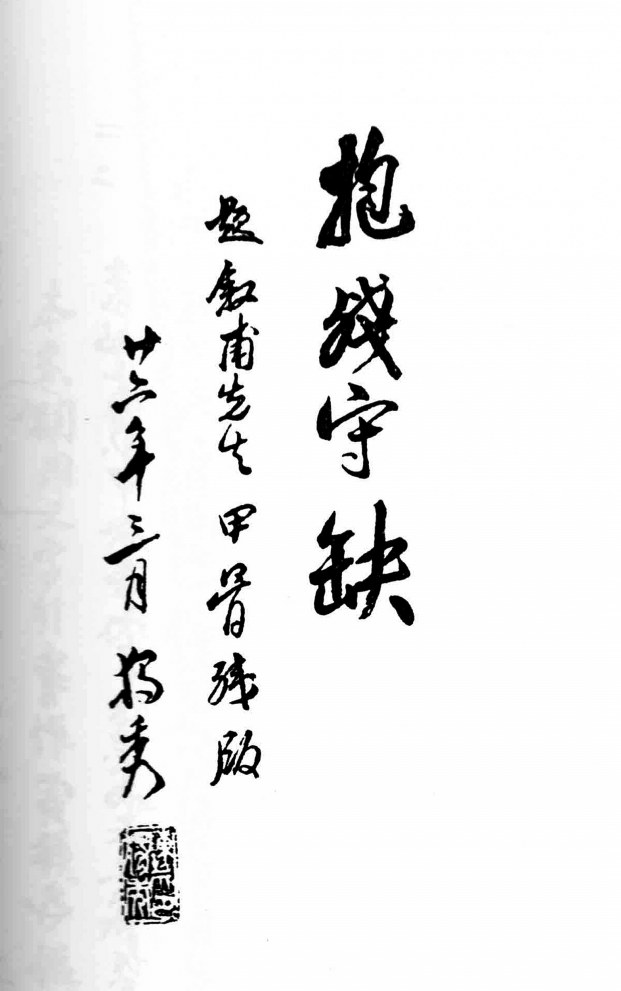 抱殘守缺
題敘甫先生甲骨殘版
廿六年三月 獨秀